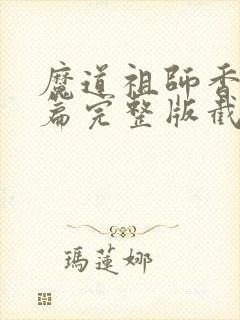 魔道祖師香
篇完整版截
瑪蓮娜